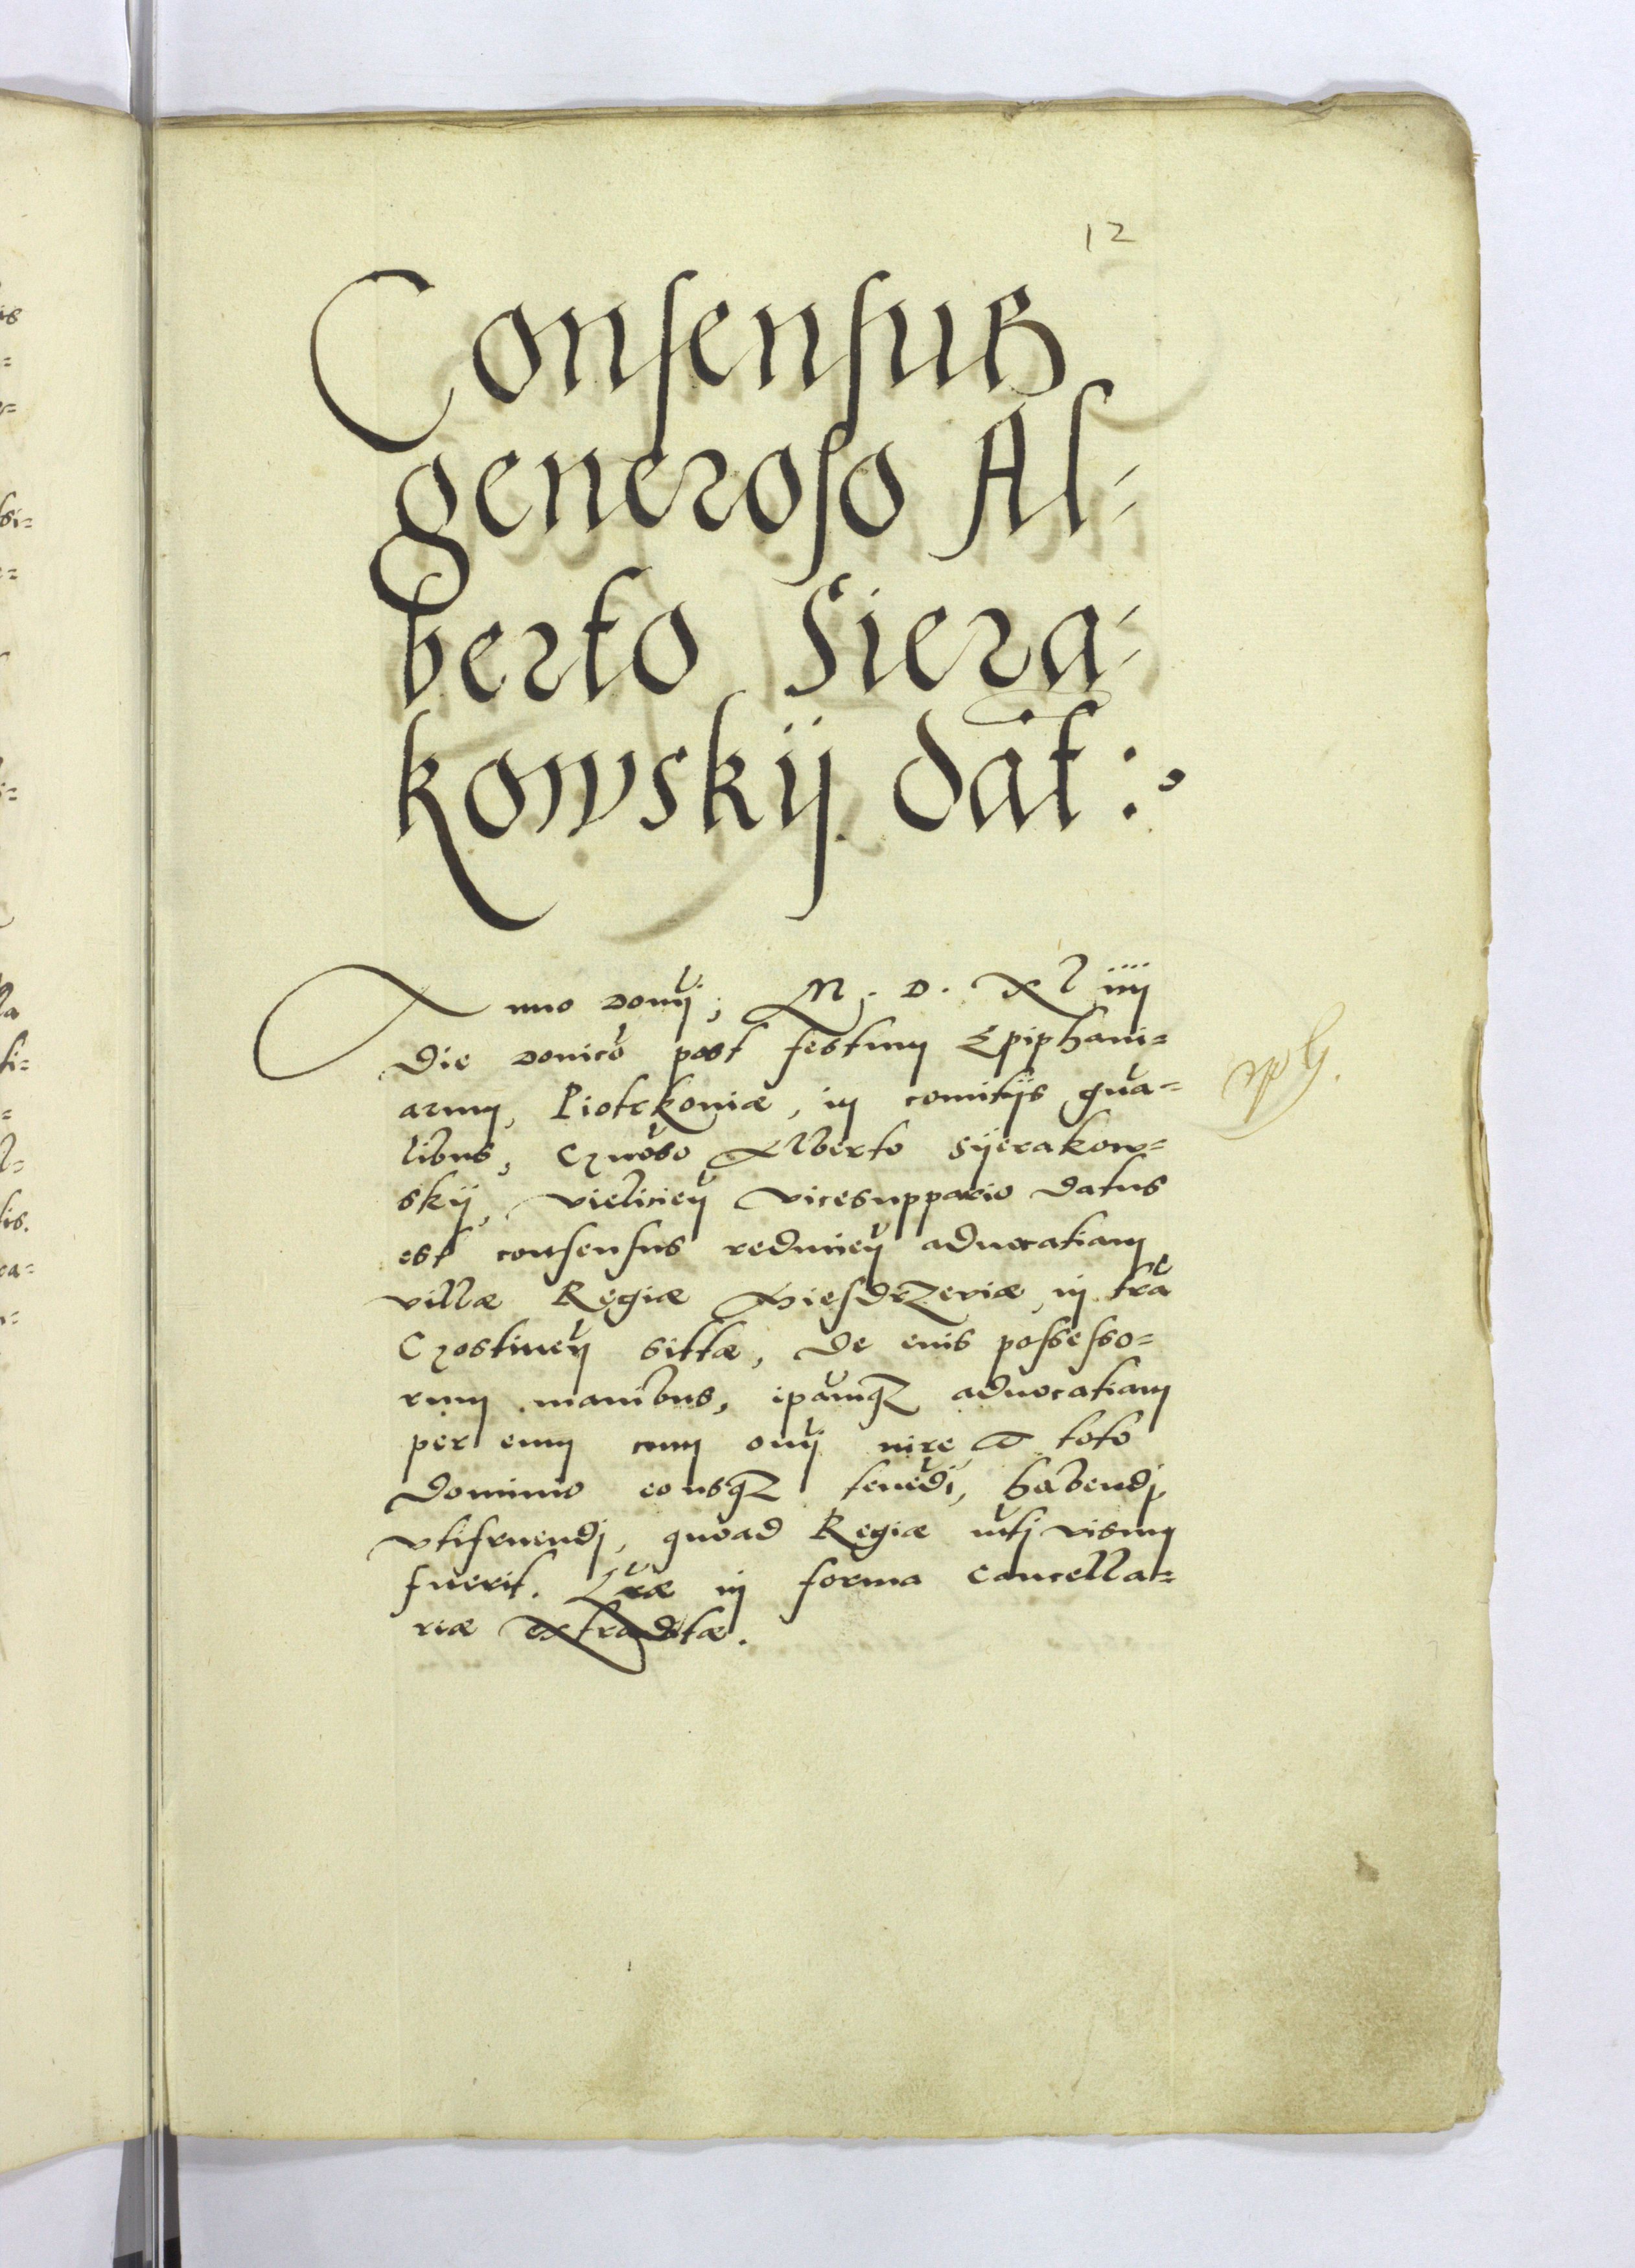 12
Consensus
generoso Al-
berto Siera-
kowskij dat:
Anno domj, M. D. XLiiij
Die donico post festum Epiphani=
arum, Piotrkoniæ, in comitijs gna=
libus, Gnoso Alberto Sijerakow=
skij, vielicien vicesuppario datus
est consensus redimen aduocatiam
villæ Regiæ in tra
sittæ, de euis possesso=
rum manibus, ipamqz aduocatiam
per eum cum omj iure et toto
dominio eousqz tenedi, habendj,
vtifruendj, quoad Regiæ mtj visum
fuerit. Lræ in forma cancella=
riæ extraditæ.